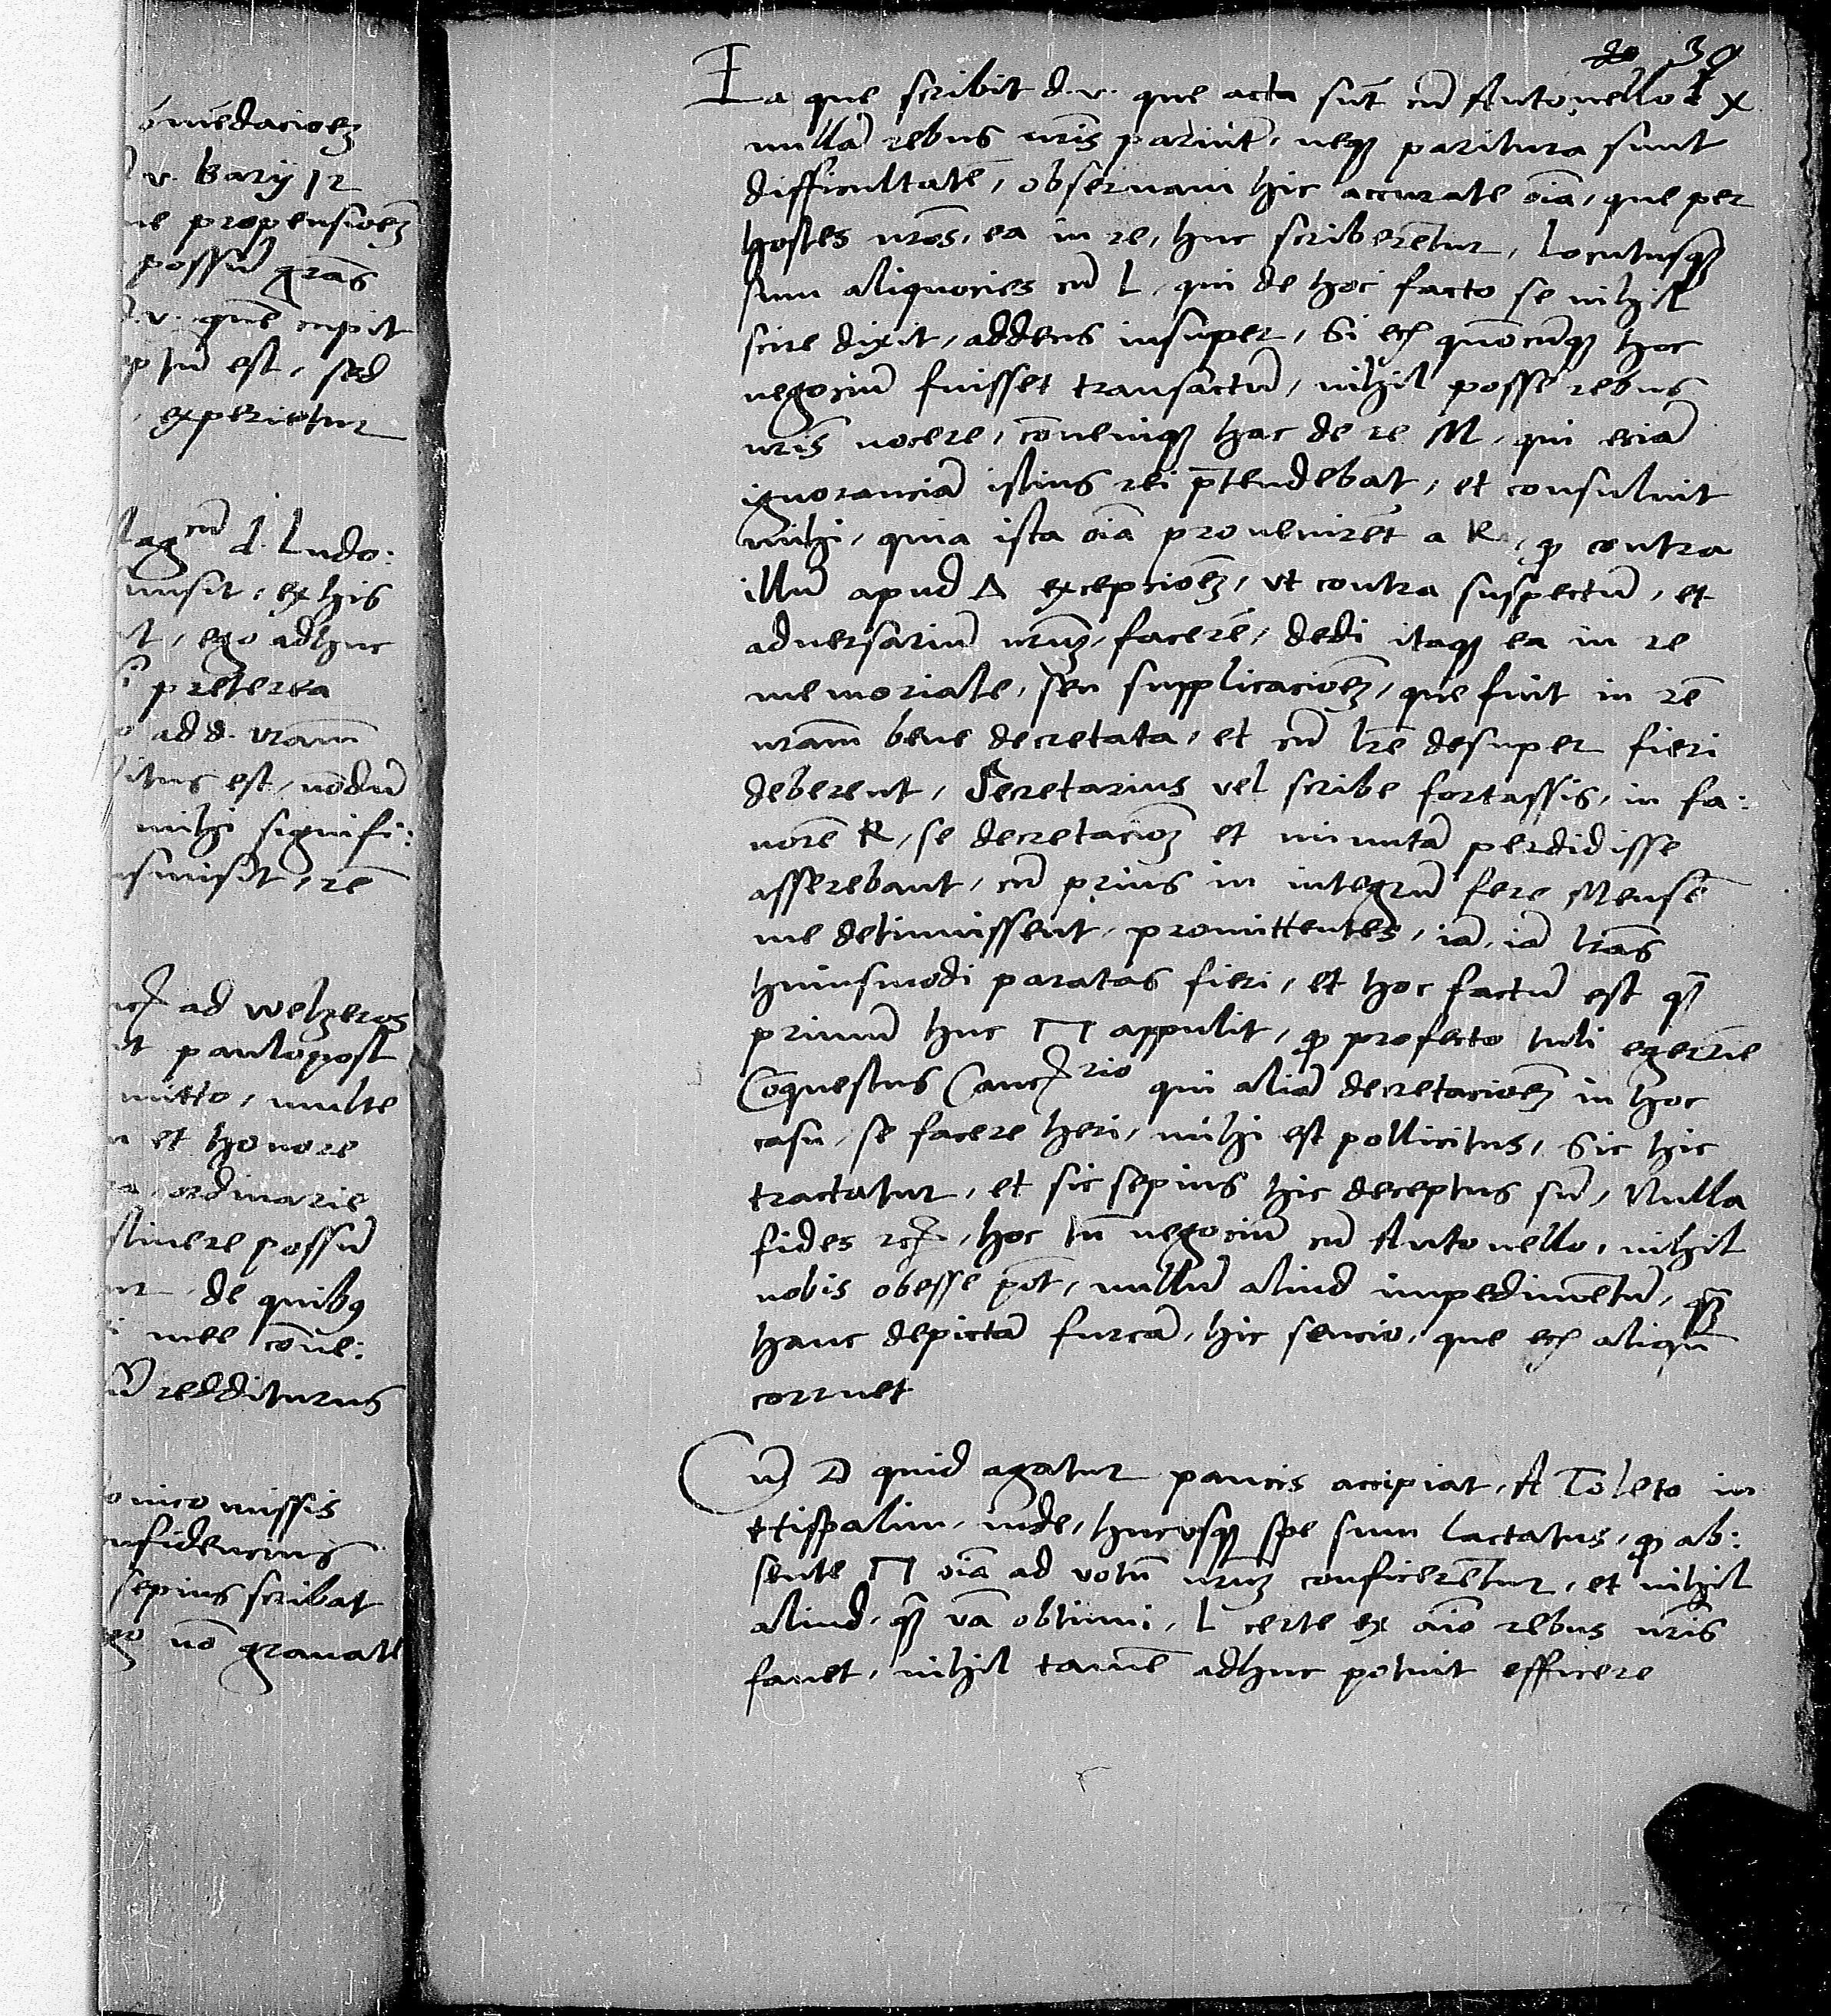 ōmēdacioēz
v. Barij 12
ne propensioēz
possū grās
d.v. quē cupit
ptū est, sed
experietur
lagcū d. Ludo:
misit, ex his
t, ego adhuc
preterea
add. vram̄
itus est, nōdū
mihi signifi:
smisit, rē
ad welzeros
t paulopost
mitto, multe
et honore
ordinarie
stinere possū
de quibq
mee cōue:
redditurus
onico missis
nfidencius
sepius scribat
nō grauate
39
Ea que scribit d.v. que acta sūt cū Antonello d X
nullā rebus vrīs pariūt, neqz paritura sunt
difficultatē, obseruaui hic accurate oīa, que per
hostes vrōs, ea in re, huc scriberētur, Locutusqz
sum aliquocies cū L, qui de hoc facto se nihil
scire dixit, addens insuper, Si et quōcūqz hoc
negociū fuisset transactū, nihil posse rebus
vrīs nocere, cōueniqz hac de re M, qui eciā
ignoranciā istius rei p̄tendebat, et consuluit
mihi, quia ista oīa prouenirēt a R, qp contra
illū apud Δ excepcioēz, vt contra suspectū, et
aduersariū vrūz, facerē, dedi itaqz ea in re
memoriale, seu supplicacioēz, que fuit in rē
vram̄ bene decretata, et cū lrē desuper fieri
deberent, Secretarius vel scribe fortassis, in fa:
uorē R, se decretacioēz et minutā perdidisse
asserebant, cū prius in integrū fere Mensē
me detinuissent, promittentes, iā, iā lrās
huiusmodi paratas fieri, et hoc factū est qn̄
primū huc Π appulit, qp profecto tuli egerrīe
Cōquestus Canc̄rio qui aliā decretacioēz in hoc
casu, se facere heri, mihi est pollicitus, Sic hic
tractatur, et sic sepius hic deceptus sū, Nulla
fides etc, hoc tn̄ negociū cū Antonello, nihil
nobis obesse pōt, nullū aliud impedimētū, qz̄
hanc depictā furcā, hic sencio, que et aliqn̄
corruet
Cū D quid agatur paucis accipiat, A Toleto in
Hispalim, inde, hucusqz spe sum lactatus, qp ab:
sente Π oīa ad votū vrūz conficerētur, et nihil
aliud, qz̄ vā obtinui, L certe ex aīo rebus vrīs
fauet, nihil tamē adhuc potuit efficere